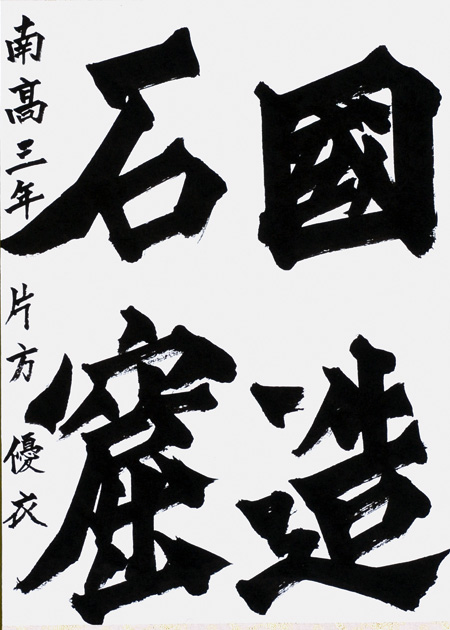 國造
石窟
南高三年 片方優衣